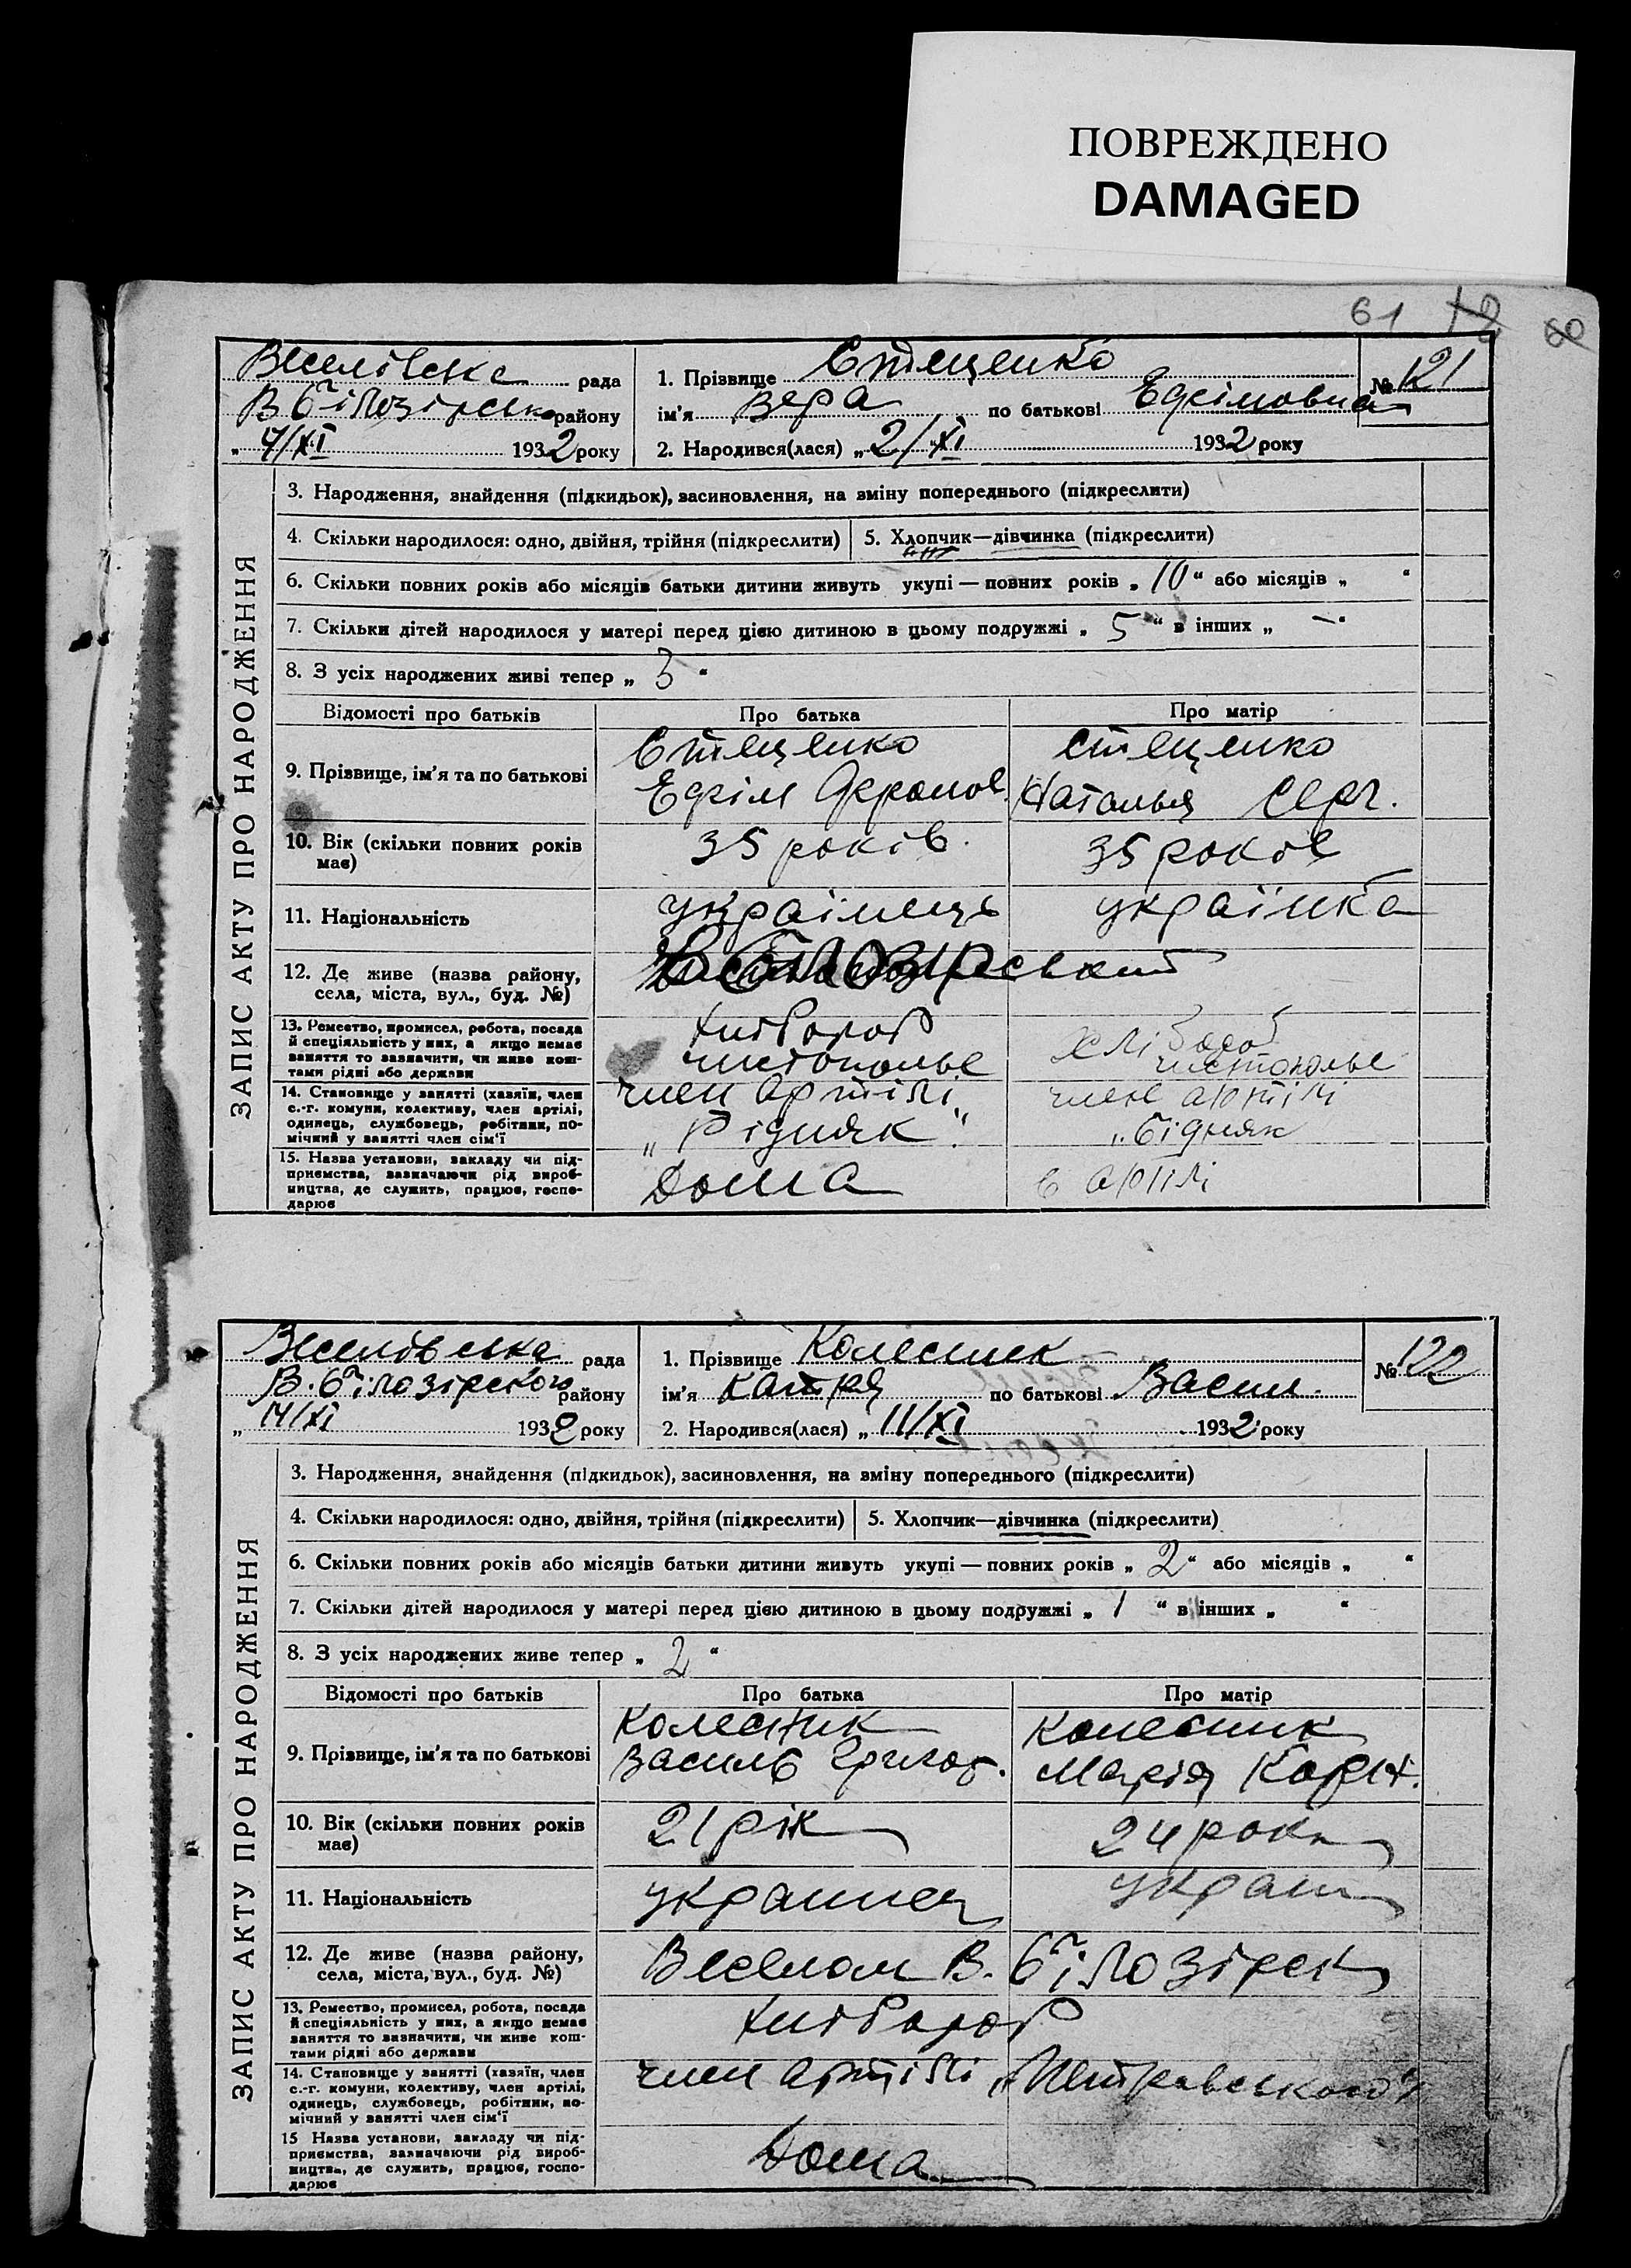 ПОВРЕЖДЕНО
DAMAGED
61 12 60
Веселівська рада
В Білозірськ району
„ 7/XI 1932 року
1. Прізвище Стеценко
ім’я Вера по батькові Ефімовна
№ 121
2. Народився(лася) „ 2/XI 1932 року
ЗАПИС АКТУ ПРО НАРОДЖЕННЯ
3. Народження, знайдення (підкидьок), засиновлення, на зміну попереднього (підкреслити)
4. Скільки народилося: одно, двійня, трійня (підкреслити) 5. Хлопчик—дівчинка (підкреслити)
6. Скільки повних років або місяців батьки дитини живуть укупі — повних років „ 10 “ або місяців „ “
7. Скільки дітей народилося у матері перед цією дитиною в цьому подружжі „ 5 “ в інших „ — “
8. З усіх народжених живі тепер „ 3 “
Відомості про батьків Про батька Про матір
9. Прізвище, ім’я та по батькові
Стеценко
Ефім Афронов.
Стеценко
Наталья Серг.
10. Вік (скільки повних років має)
35 років.
35 років
11. Національність
українець
українка
12. Де живе (назва району,
села, міста, вул., буд. №)
В Білозірський
13. Ремество, промисел, робота, посада
й спеціяльність у них, а якщо немає
заняття то зазначити, чи живе кош-
тами рідні або держави
хлібороб
чистополье
хлібороб
чистополье
14. Становище у занятті (хазяїн, член
с.-г. комуни, колективу, член артілі,
одинець, службовець, робітник, по-
мічний у занятті член сім’ї
член артілі
„Бідняк“.
член артілі
„Бідняк
15. Назва установи, закладу чи під-
приємства, зазначаючи рід вироб-
ництва, де служить, працює, госпо-
дарює
Дома
в артілі
Веселівська рада
В. Білозірского району
„ 14/XI 1932 року
1. Прізвище Колесник
ім’я Катря по батькові Васил.
№ 122
2. Народився(лася) „ 11/XI 1932 року
ЗАПИС АКТУ ПРО НАРОДЖЕННЯ
3. Народження, знайдення (підкидьок), засиновлення, на зміну попереднього (підкреслити)
4. Скільки народилося: одно, двійня, трійня (підкреслити) 5. Хлопчик—дівчинка (підкреслити)
6. Скільки повних років або місяців батьки дитини живуть укупі — повних років „ 2 “ або місяців „ “
7. Скільки дітей народилося у матері перед цією дитиною в цьому подружжі „ 1 “ в інших „ “
8. З усіх народжених живе тепер „ 2 “
Відомості про батьків Про батька Про матір
9. Прізвище, ім’я та по батькові
Колесник
Василь Григор.
Колесник
Марія Корн.
10. Вік (скільки повних років має)
21 рік
24 роки
11. Національність
украинец
украин
12. Де живе (назва району,
села, міста, вул., буд. №)
Веселом В. Білозірск
13. Ремество, промисел, робота, посада
й спеціяльність у них, а якщо немає
заняття то зазначити, чи живе кош-
тами рідні або держави
хлібороб
14. Становище у занятті (хазяїн, член
с.-г. комуни, колективу, член артілі,
одинець, службовець, робітник, по-
мічний у занятті член сім’ї
член артілі „Петровського“
15 Назва установи, закладу чи під-
приємства, зазначаючи рід вироб-
ництва, де служить, працює, госпо-
дарює
Дома